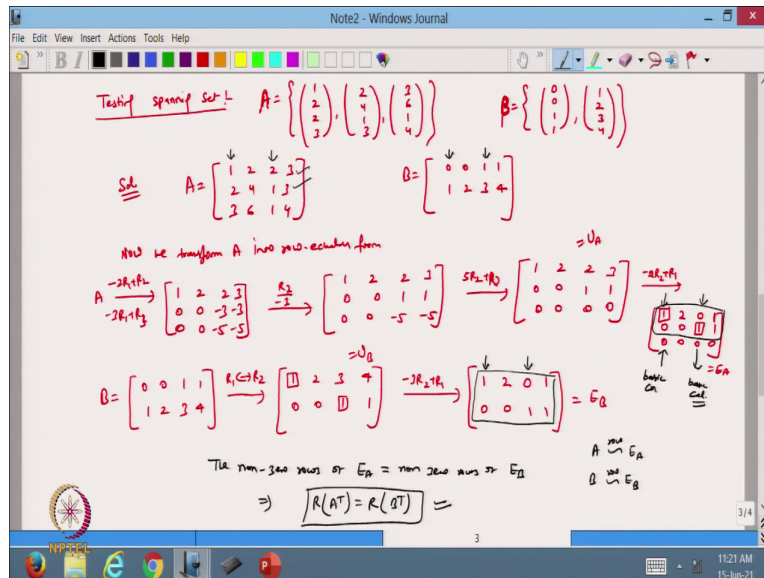 Note2 - Windows Journal
File Edit View Insert Actions Tools Help
Testing spanning set:- A = { (1 2 2 3), (2 4 1 3), (3 6 1 4) } B = { (0 0 1 1), (1 2 3 4) }
Sol A = [ 1 2 2 3
2 4 1 3
3 6 1 4 ] B = [ 0 0 1 1
1 2 3 4 ]
Now we transform A into row-echelon form
A -2R1+R2 -3R1+R3 → [ 1 2 2 3
0 0 -3 -3
0 0 -5 -5 ] R2/-3 → [ 1 2 2 3
0 0 1 1
0 0 -5 -5 ] 5R2+R3 → [ 1 2 2 3
0 0 1 1
0 0 0 0 ] = UA -2R2+R1 → [ 1 2 0 1
0 0 1 1
0 0 0 0 ] = EA
basic col. basic col.
B = [ 0 0 1 1
1 2 3 4 ] R1↔R2 → [ 1 2 3 4
0 0 1 1 ] = UB -3R2+R1 → [ 1 2 0 1
0 0 1 1 ] = EB
The non-zero rows of EA = non zero rows of EB
A row ~ EA
B row ~ EB
⇒ R(A^T) = R(B^T) =
NPTEL
3
3/4
11:21 AM
15-Jun-21